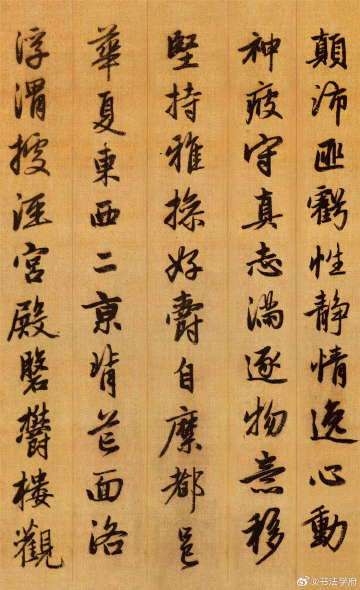 顛沛匪虧性靜情逸心動
神疲守真志滿逐物意移
堅持雅操好爵自縻都邑
華夏東西二京背芒面洛
浮渭據涇宮殿磐鬱樓觀
@书法学府